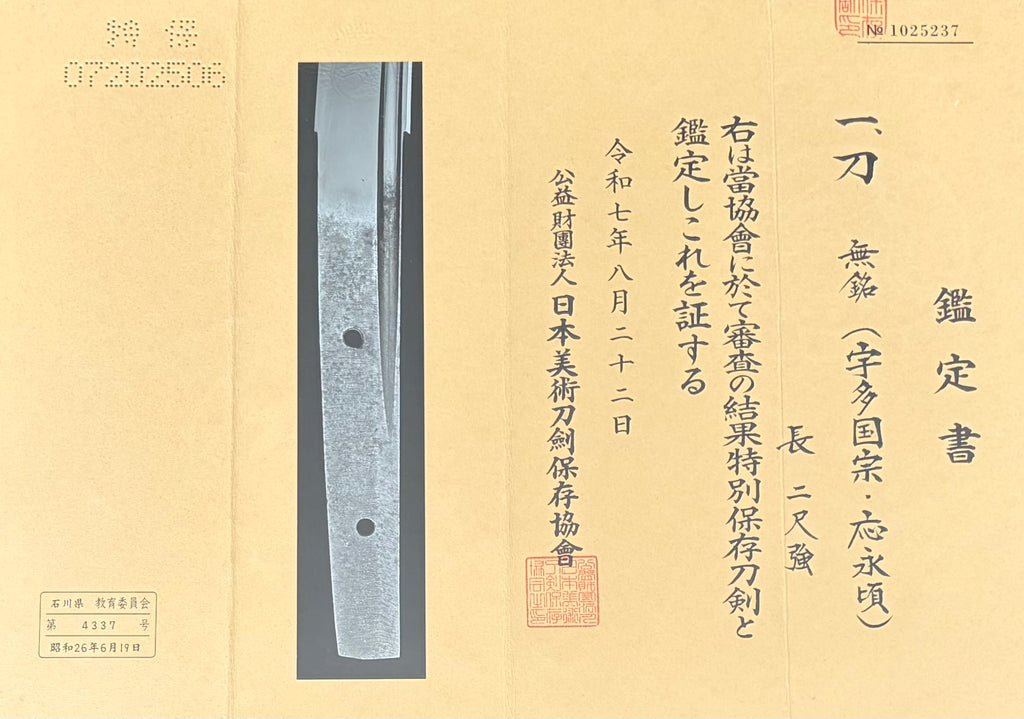 № 1025237
鑑定書
一、刀 無銘（宇多国宗・応永頃）
長 二尺強
右は當協會に於て審査の結果特別保存刀剣と
鑑定しこれを証する
令和七年八月二十二日
公益財團法人 日本美術刀劍保存協會
特保
07202506
石川県 教育委員会
第 4337 号
昭和26年6月19日